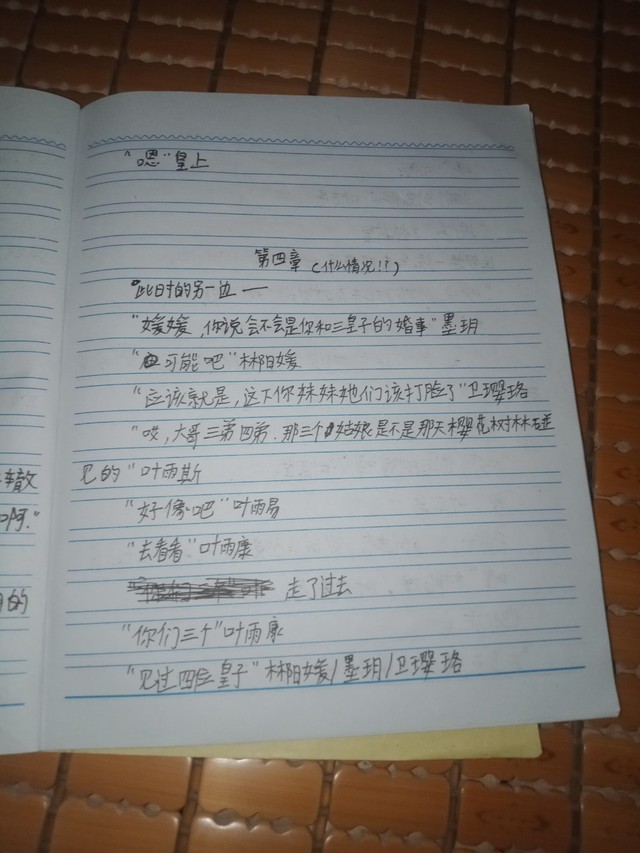 "嗯"皇上
第四章（什么情况!!）
此时的另一边——
"媛媛，你说会不会是你和三皇子的婚事"墨玥
"可能吧"郴媛
"应该就是，这下你妹妹她们该打脸了"卫璎珞
"哎，大哥三弟四弟.那三个姑娘是不是那天樱花树林碰
辙 见的"叶雨斯
啊." "好像吧"叶雨易
"去看看"叶雨康
走了过去
的 "你们三个"叶雨康
"见过四位皇子"郴媛/墨玥/卫璎珞